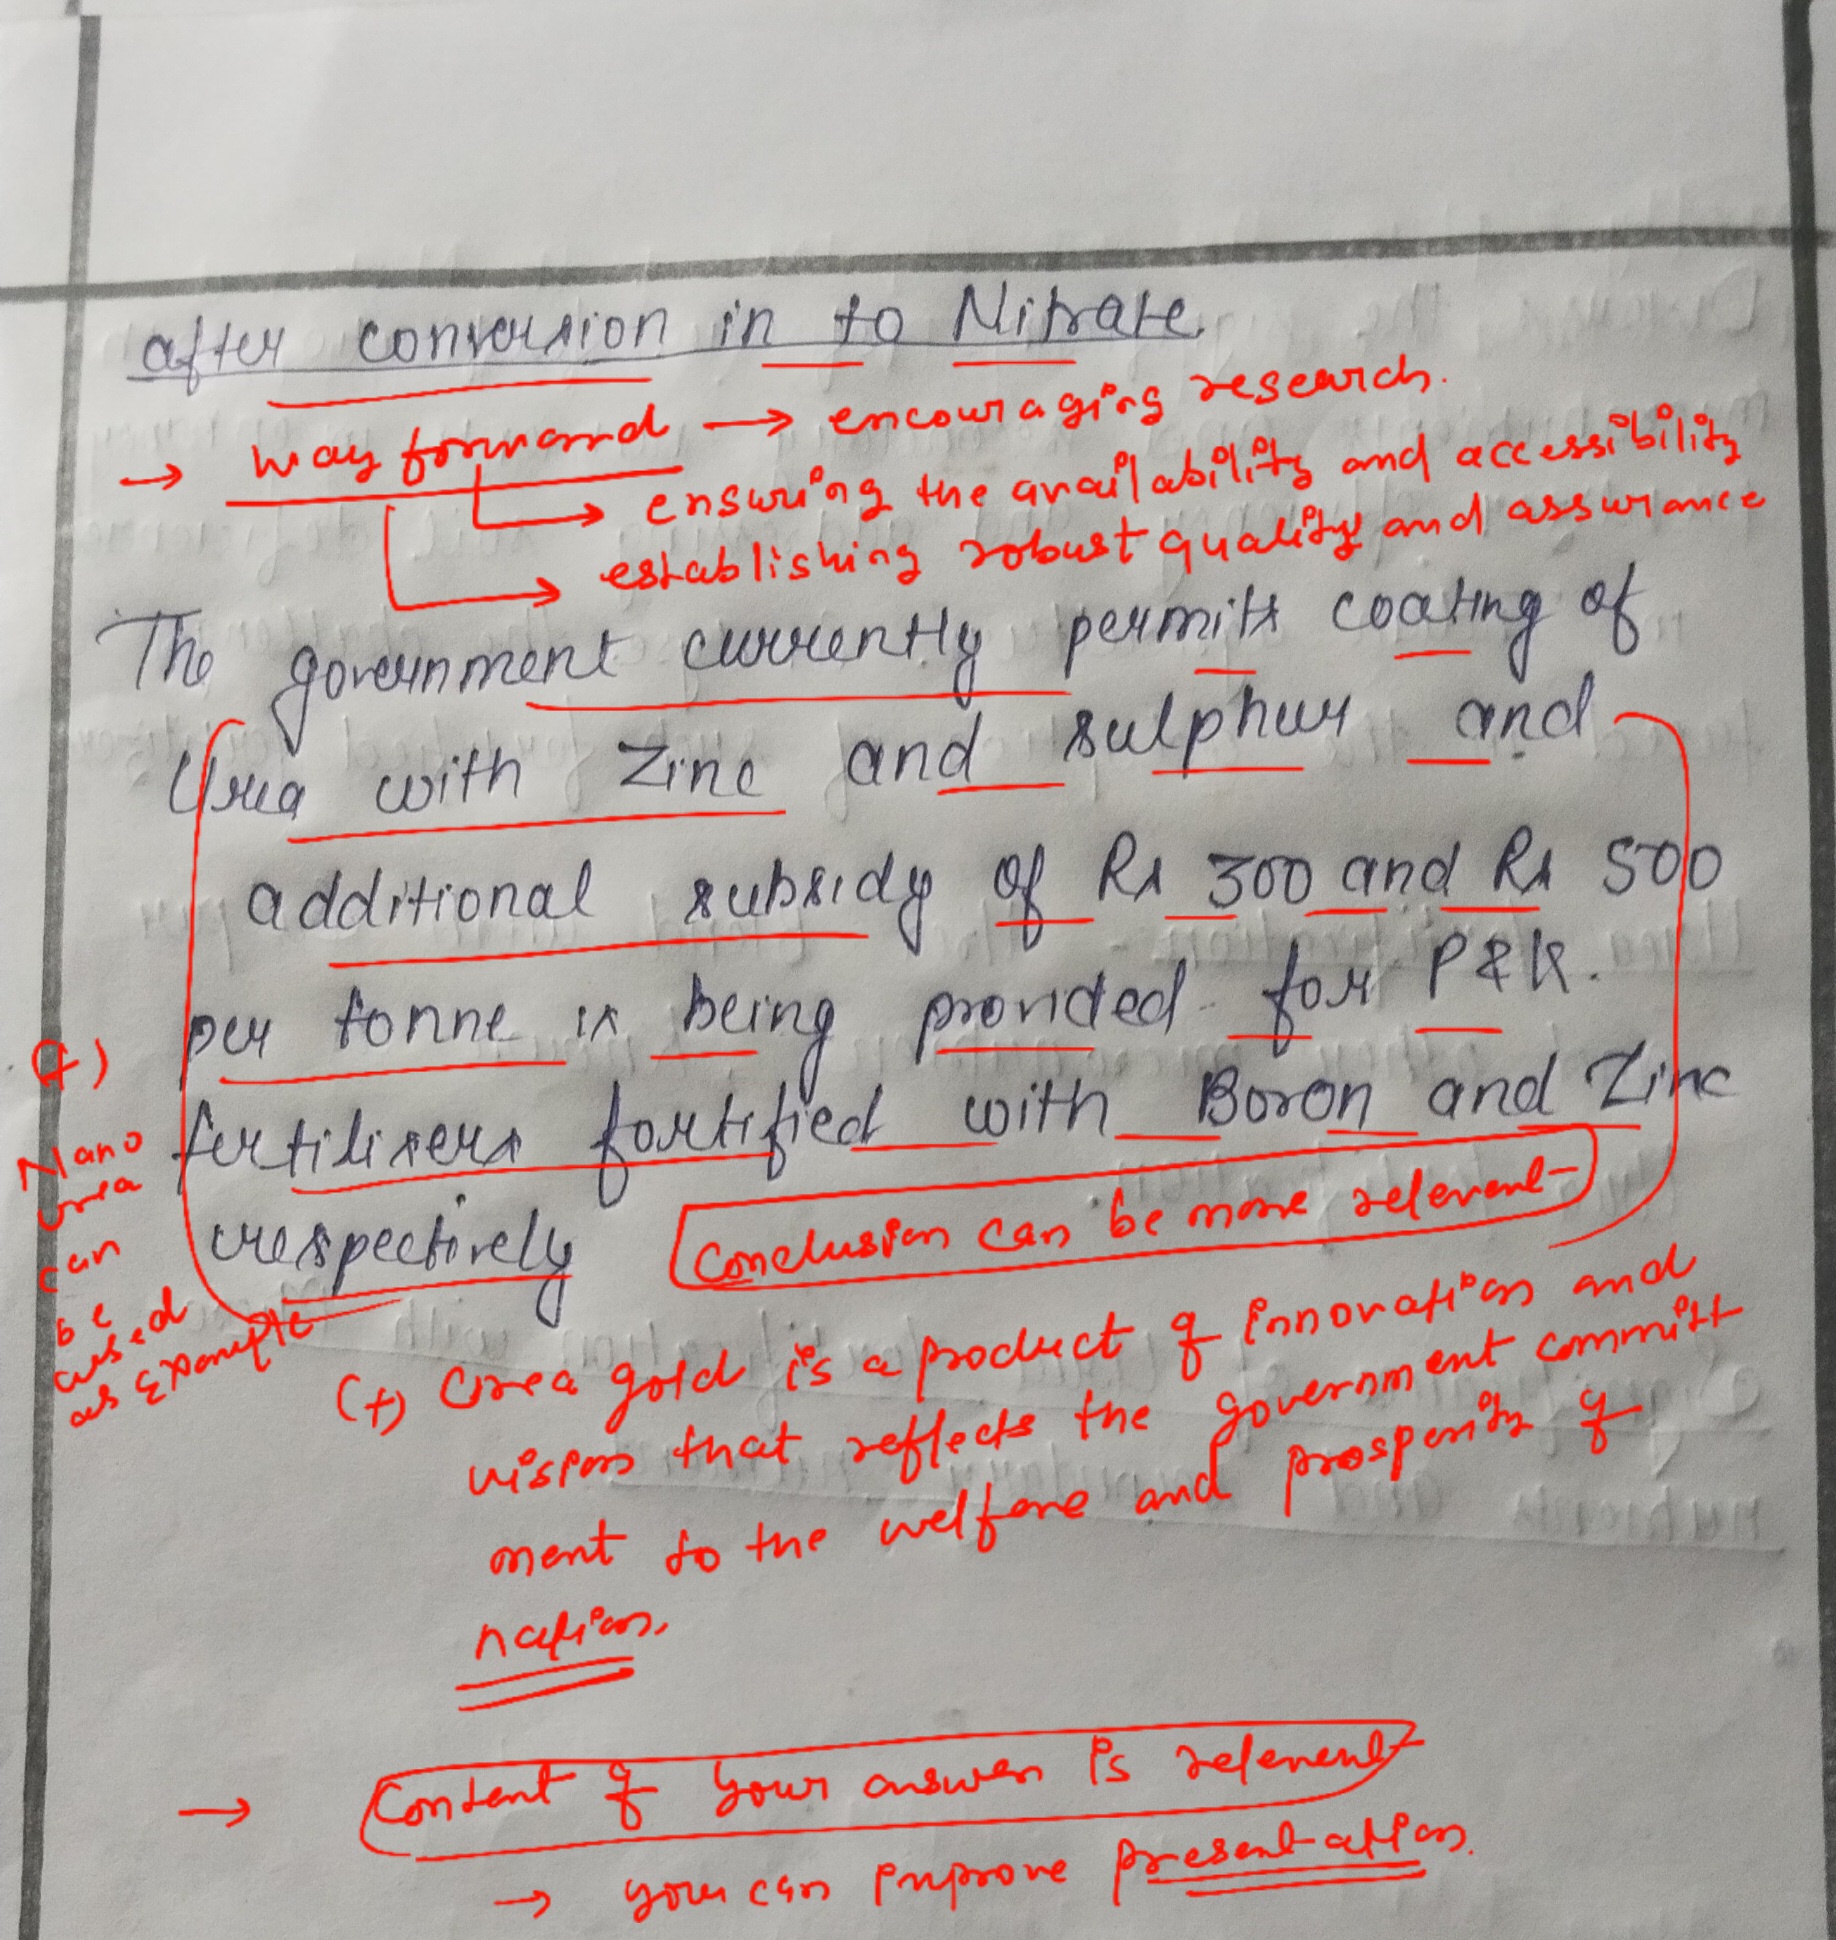 after conversion in to Nitrate
→ way forward → encouraging research.
→ ensuring the availability and accessibility
→ establishing robust quality and assurance
The government currently permits coating of
Urea with Zinc and sulphur and
additional subsidy of Rs 300 and Rs 500
per tonne is being provided for P&K.
fertilisers fortified with Boron and Zinc
respectively
Conclusion can be more relevent
(+)
Nano
Urea
can
be
used
as Example
(+) Urea gold is a product of innovation and
vision that reflects the government committ
ment to the welfare and prosperity of
nation.
→ Content of your answer is relevent
→ you can improve presentation.